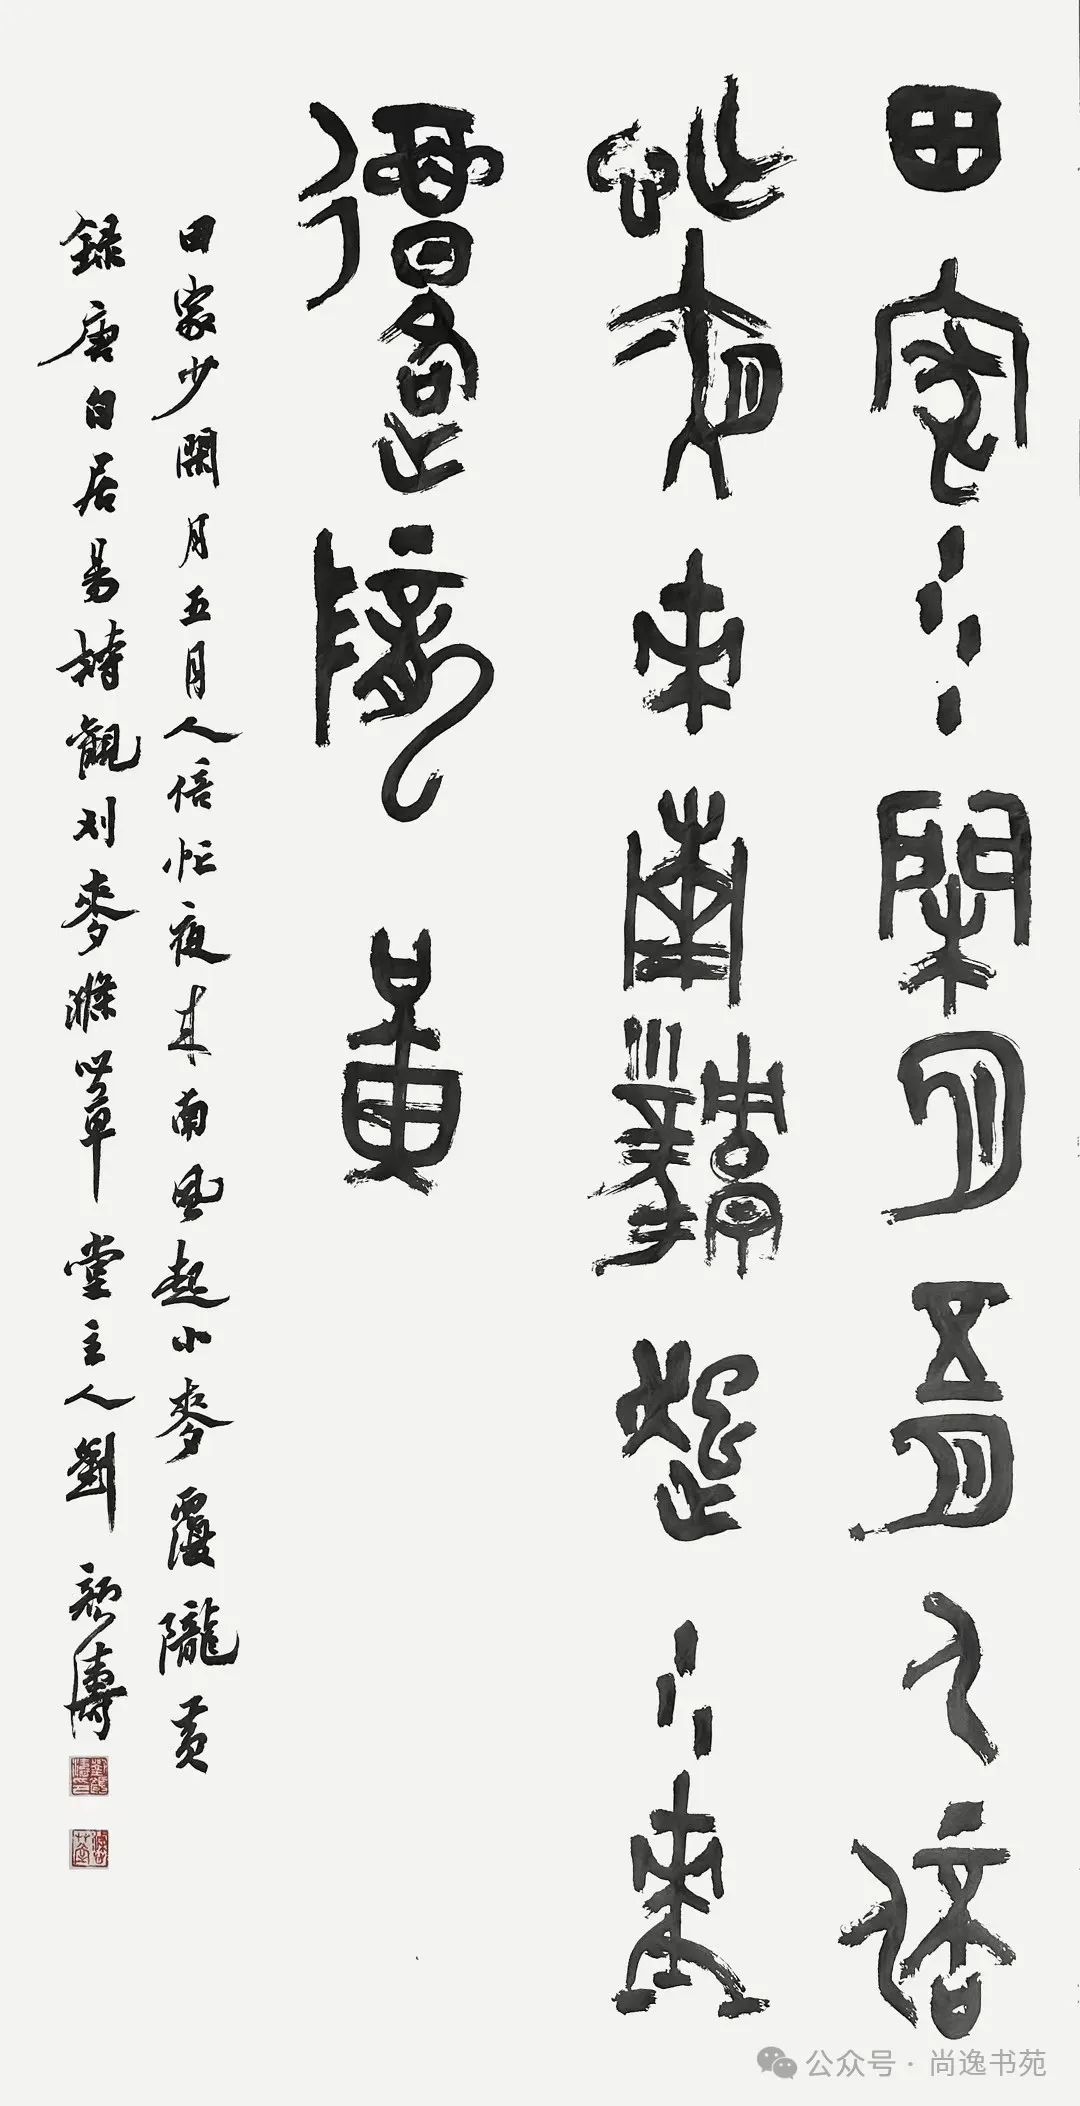 田家少閑月五月人倍
忙夜來南風起小麥
覆隴黃
田家少閑月五月人倍忙夜来南風起小麥覆隴黄
録唐白居易詩觀刈麥滌堂主人劉顏濤
公众号·尚逸书苑